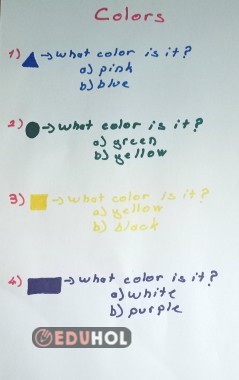 Colors
1) → What color is it?
a) pink
b) blue
2) → What color is it?
a) green
b) yellow
3) → What color is it?
a) yellow
b) black
4) → What color is it?
a) white
b) purple
EDUHOL